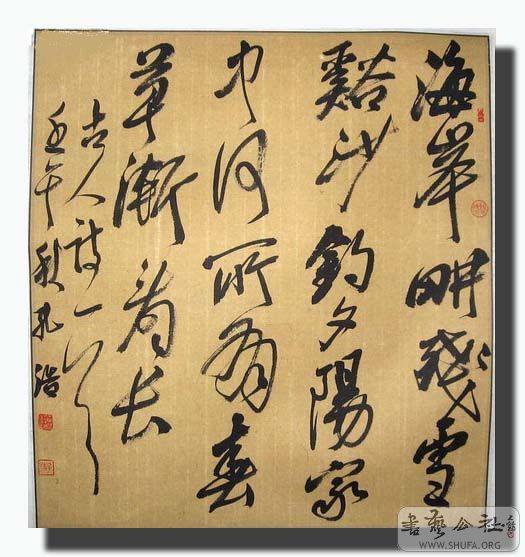 海岸畊殘雪
谿沙釣夕陽家
中何所有春
草漸看長
古人詩一首
壬午秋孔浩
書藝公社
WWW.SHUFA.ORG